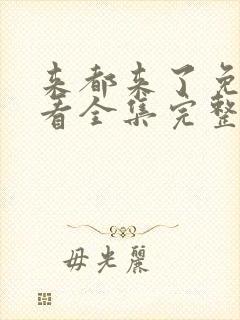 来都来了免
看全集完整
毋光麗